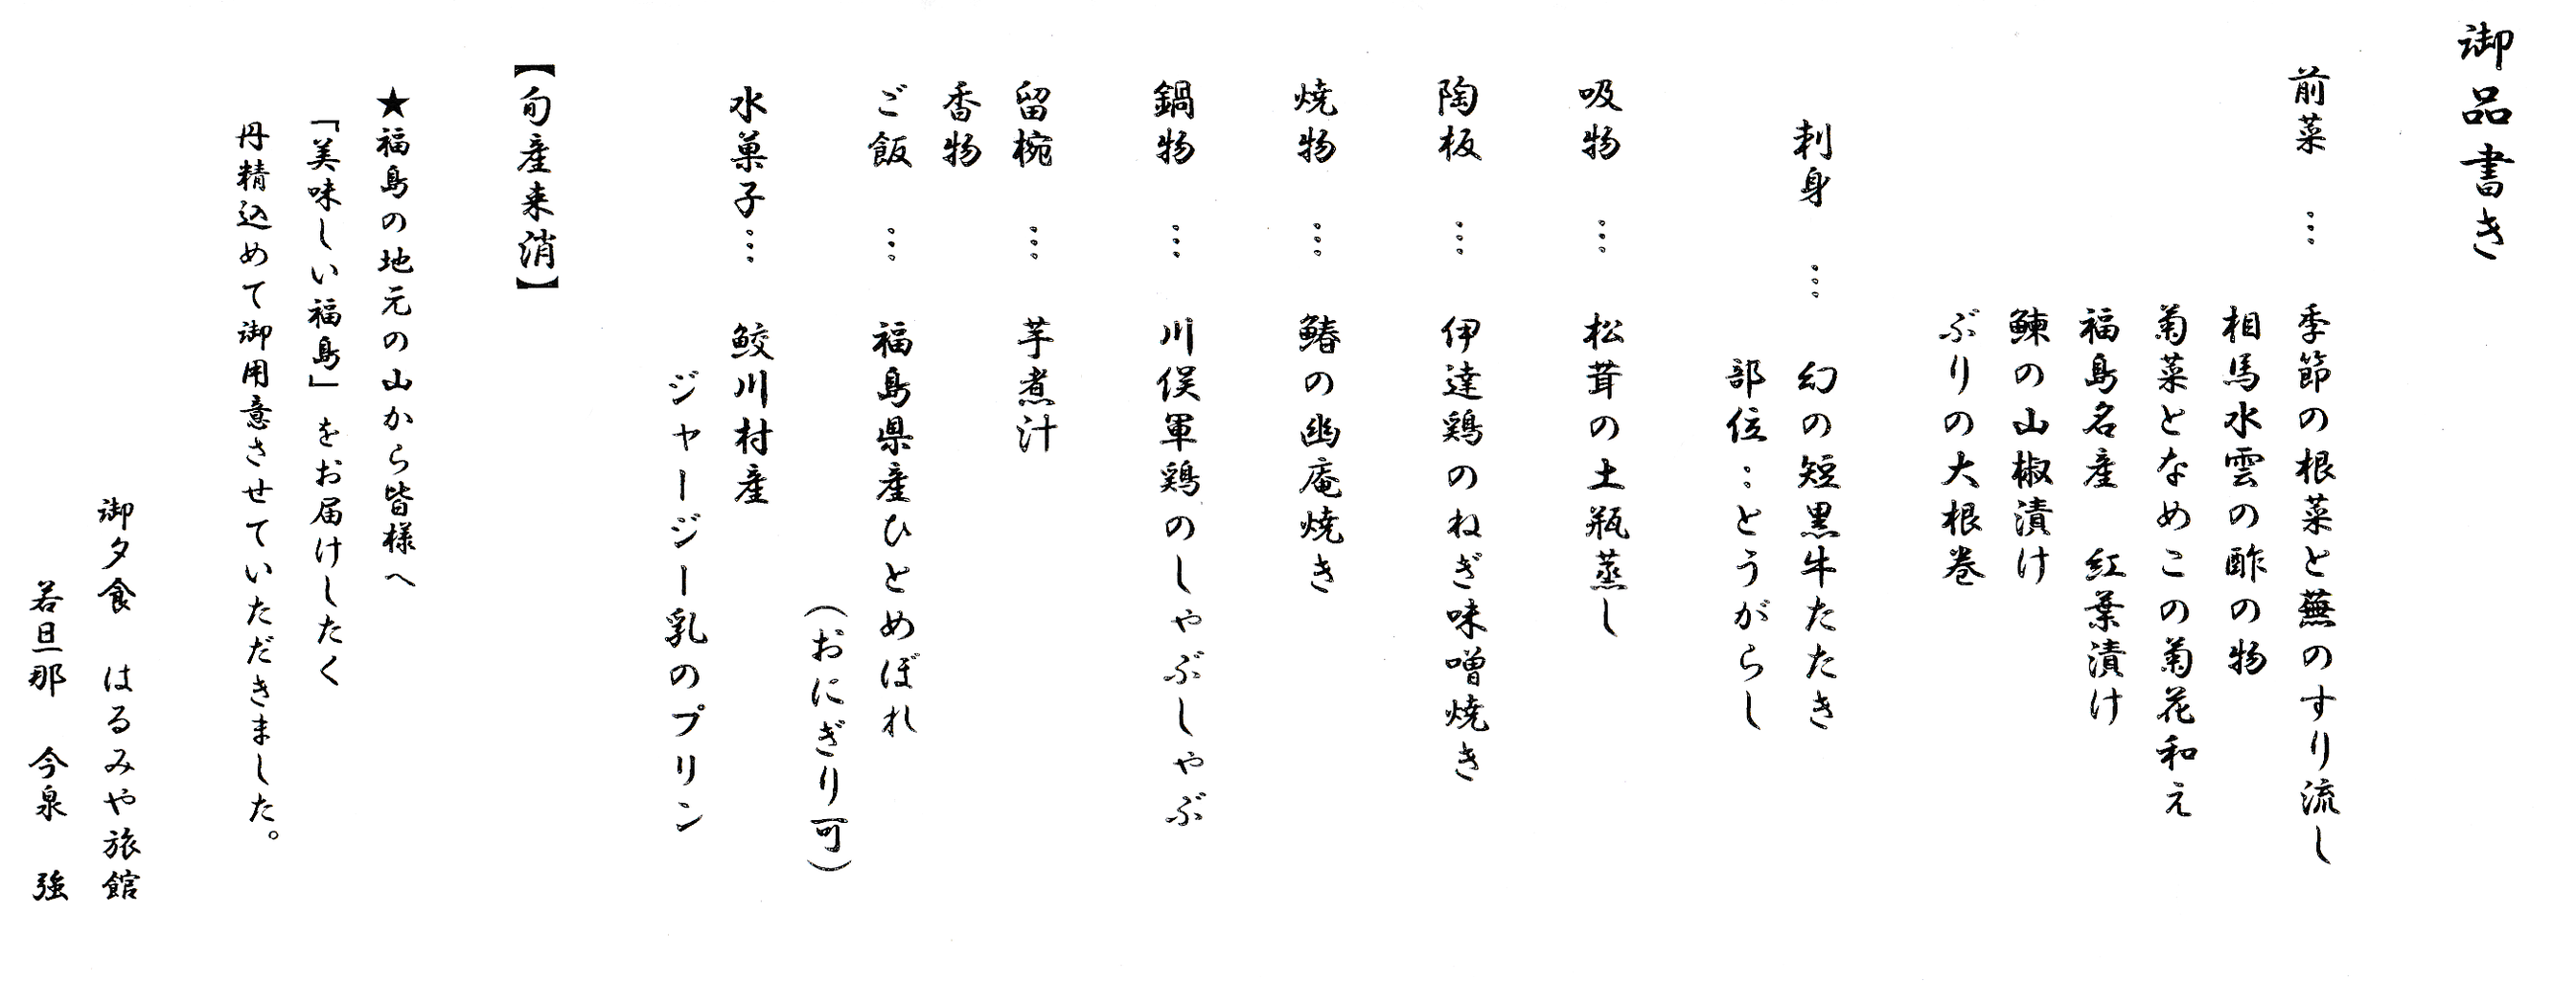 御品書き
前菜 … 季節の根菜と蕪のすり流し
相馬水雲の酢の物
菊菜となめこの菊花和え
福島名産 紅葉漬け
鰊の山椒漬け
ぶりの大根巻
刺身 … 幻の短黒牛たたき
部位：とうがらし
吸物 … 松茸の土瓶蒸し
陶板 … 伊達鶏のねぎ味噌焼き
焼物 … 鰆の幽庵焼き
鍋物 … 川俣軍鶏のしゃぶしゃぶ
留椀 … 芋煮汁
香物
ご飯 … 福島県産ひとめぼれ
（おにぎり可）
水菓子… 鮫川村産
ジャージー乳のプリン
【旬産来消】
★福島の地元の山から皆様へ
「美味しい福島」をお届けしたく
丹精込めて御用意させていただきました。
御夕食 はるみや旅館
若旦那 今泉 強